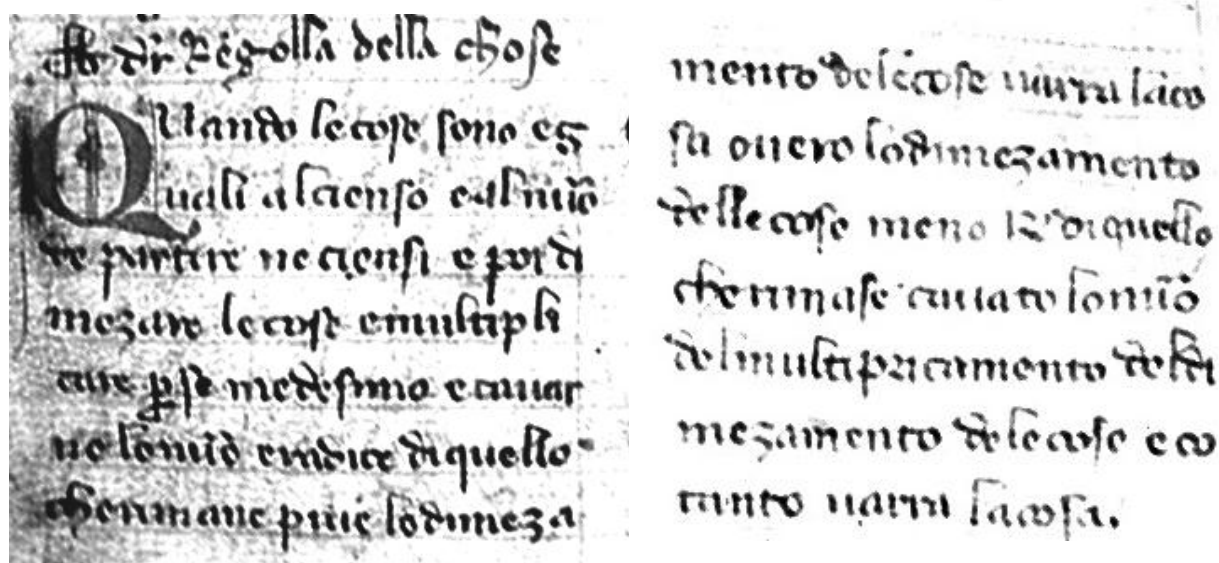 Regolla della chose
Quando le cose sono eg
uali al censo e al nuo
de partire ne ciensi e poi di
mezare le cose e multipli
care p se medesimo e cavar
ne lo nuo e radice di quello
che rimane piue lo dimeza
mento de le cose varra la co
sa overo lo dimezamento
delle cose meno R di quello
che rimase cavato lo nuo
del multipricamento del di
mezamento de le cose e co
tanto varra la cosa.